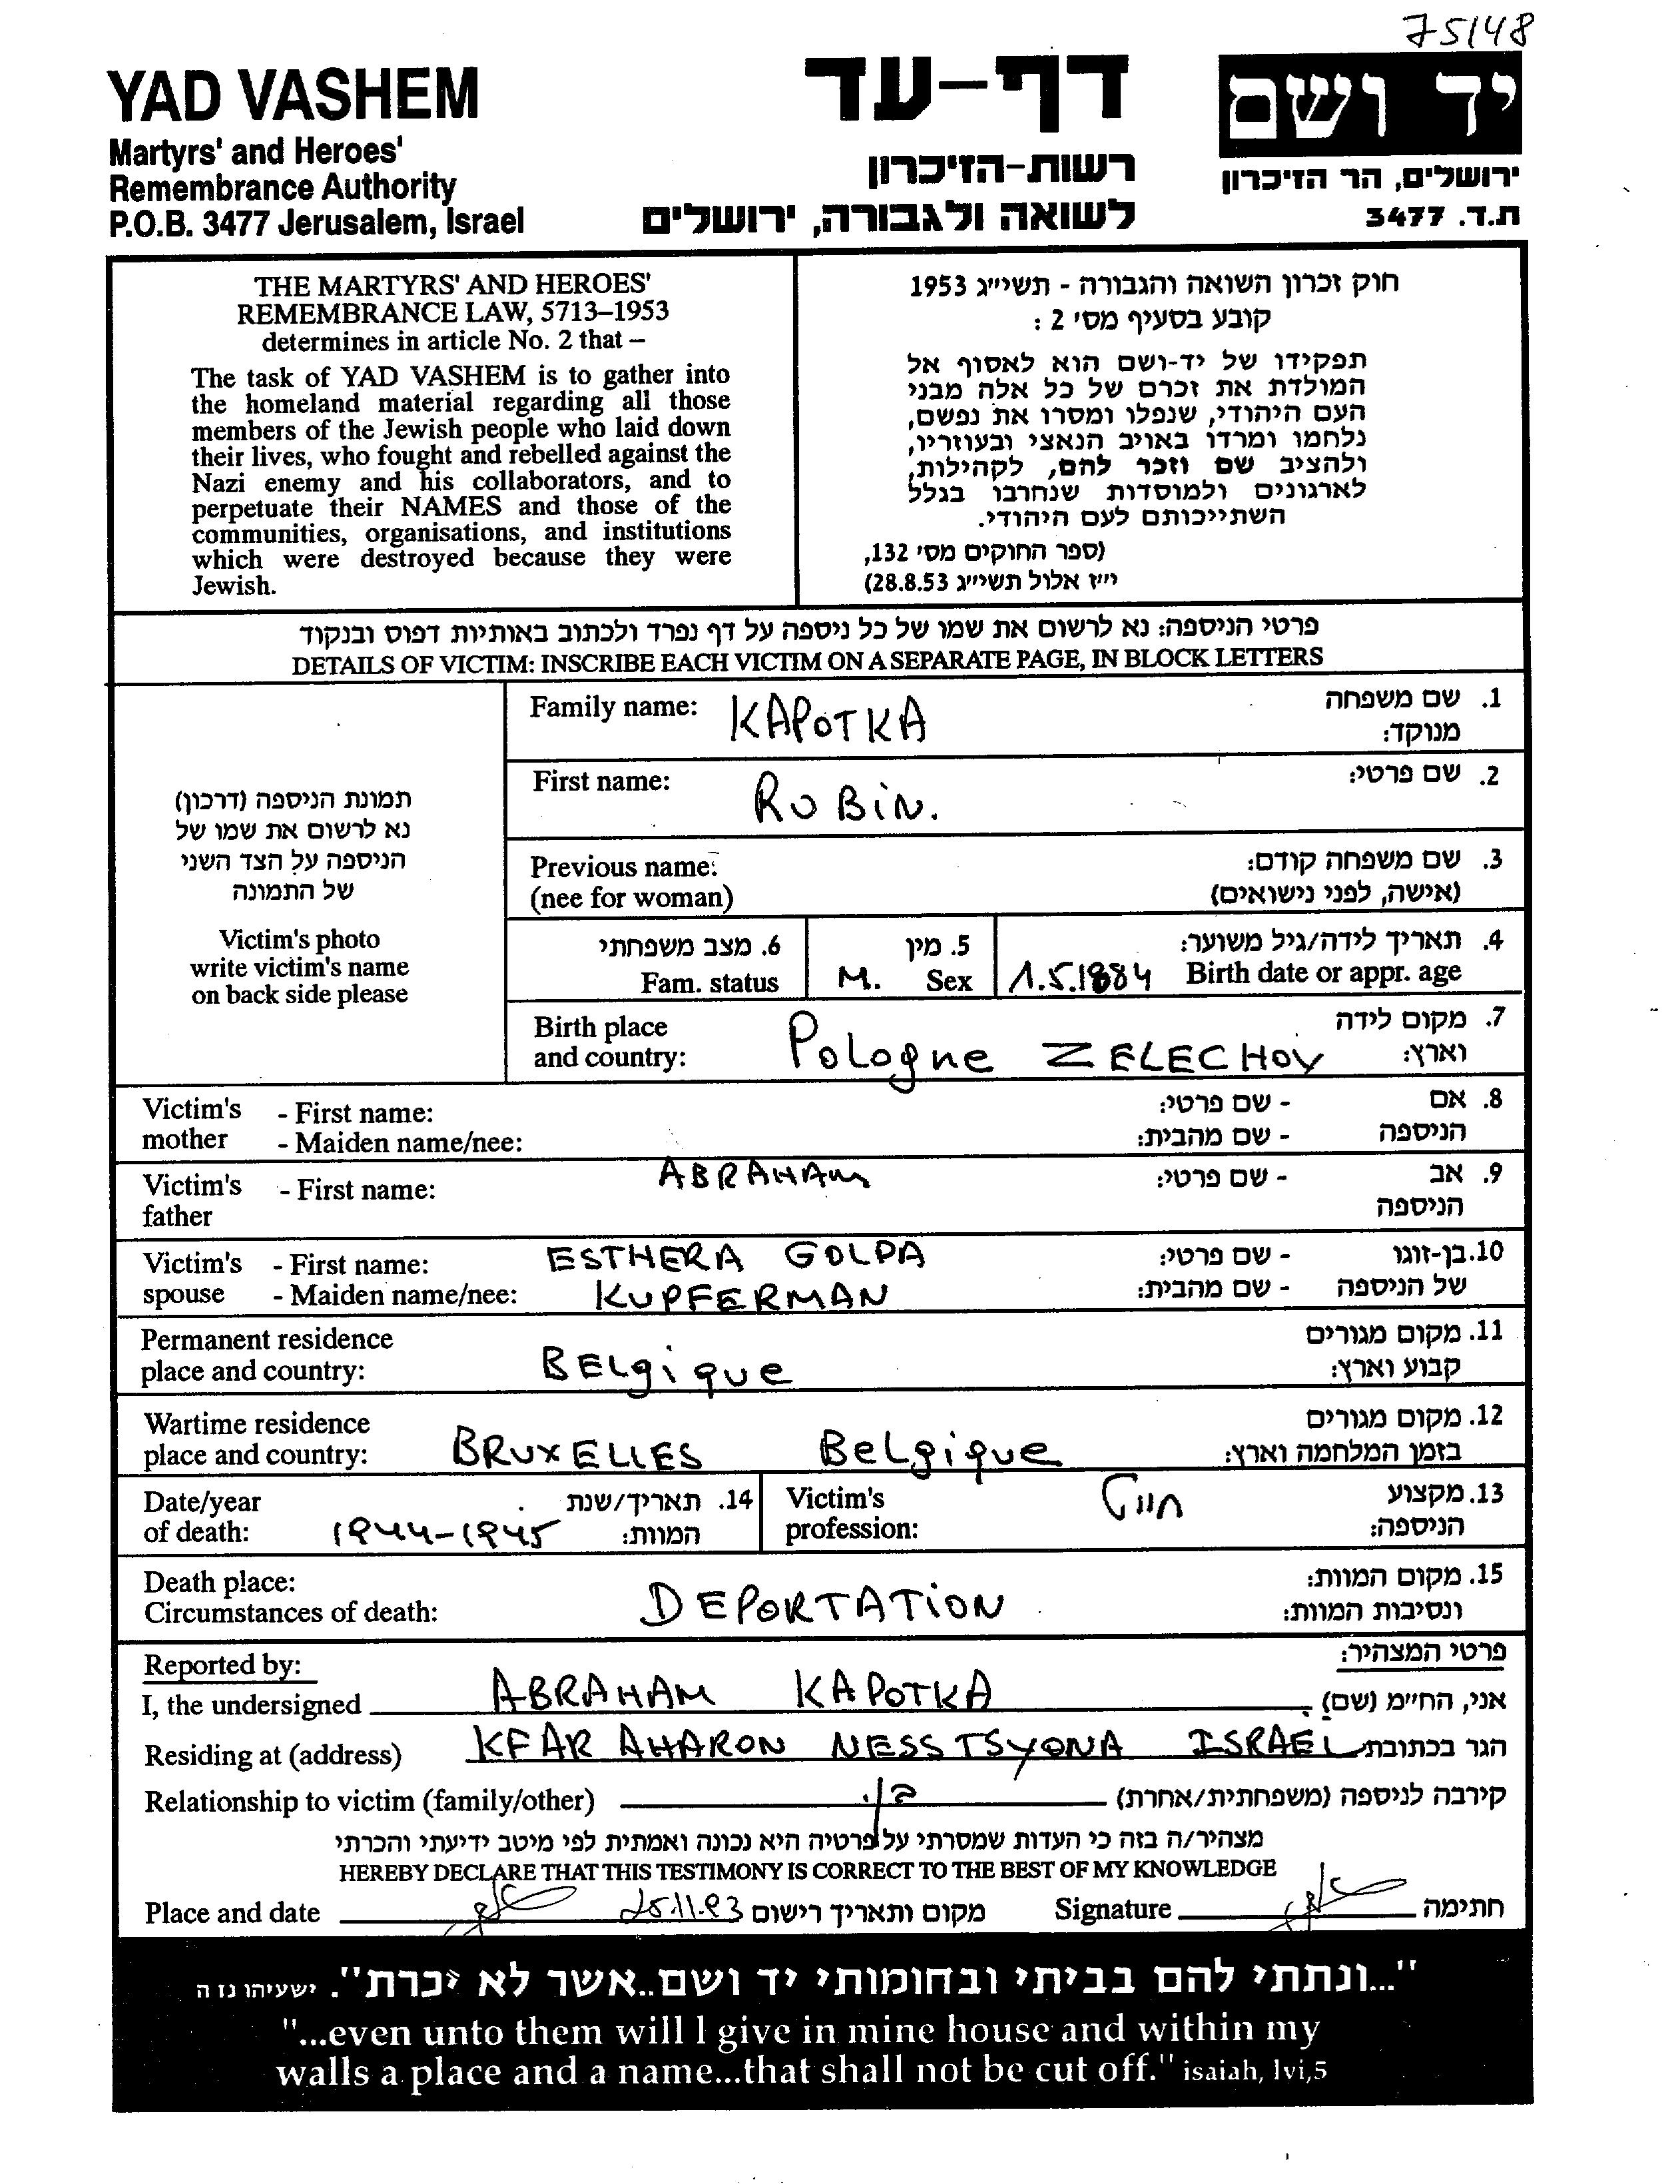 75148
YAD VASHEM
Martyrs' and Heroes'
Remembrance Authority
P.O.B. 3477 Jerusalem, Israel
דף-עד
רשות-הזיכרון
לשואה ולגבורה, ירושלים
יד ושם
ירושלים, הר הזיכרון
ת.ד. 3477
THE MARTYRS' AND HEROES'
REMEMBRANCE LAW, 5713–1953
determines in article No. 2 that –
The task of YAD VASHEM is to gather into
the homeland material regarding all those
members of the Jewish people who laid down
their lives, who fought and rebelled against the
Nazi enemy and his collaborators, and to
perpetuate their NAMES and those of the
communities, organisations, and institutions
which were destroyed because they were
Jewish.
חוק זכרון השואה והגבורה - תשי״ג 1953
קובע בסעיף מס׳ 2 :
תפקידו של יד-ושם הוא לאסוף אל
המולדת את זכרם של כל אלה מבני
העם היהודי, שנפלו ומסרו את נפשם,
נלחמו ומרדו באויב הנאצי ובעוזריו,
ולהציב שם וזכר להם, לקהילות,
לארגונים ולמוסדות שנחרבו בגלל
השתייכותם לעם היהודי.
(ספר החוקים מס׳ 132,
י״ז אלול תשי״ג 28.8.53)
פרטי הניספה: נא לרשום את שמו של כל ניספה על דף נפרד ולכתוב באותיות דפוס ובנקוד
DETAILS OF VICTIM: INSCRIBE EACH VICTIM ON A SEPARATE PAGE, IN BLOCK LETTERS
תמונת הניספה (דרכון)
נא לרשום את שמו של
הניספה על הצד השני
של התמונה
Victim's photo
write victim's name
on back side please
Family name: KAPOTKA 1. שם משפחה
מנוקד:
First name: RUBIN. 2. שם פרטי:
Previous name: 3. שם משפחה קודם:
(nee for woman) (אישה, לפני נישואים)
6. מצב משפחתי 5. מין 4. תאריך לידה/גיל משוער:
Fam. status M. Sex 1.5.1884 Birth date or appr. age
Birth place 7. מקום לידה
and country: Pologne ZELECHOV וארץ:
Victim's - First name: - שם פרטי: 8. אם
mother - Maiden name/nee: - שם מהבית: הניספה
Victim's - First name: ABRAHAM - שם פרטי: 9. אב
father הניספה
Victim's - First name: ESTHERA GOLDA - שם פרטי: 10. בן-זוגו
spouse - Maiden name/nee: KUPFERMAN - שם מהבית: של הניספה
Permanent residence 11. מקום מגורים
place and country: BELgique קבוע וארץ:
Wartime residence 12. מקום מגורים
place and country: BRUXELLES Belgique בזמן המלחמה וארץ:
Date/year 14. תאריך/שנת Victim's חייט 13. מקצוע
of death: 1944-1945 המוות: profession: הניספה:
Death place: 15. מקום המוות:
Circumstances of death: DEPORTATION ונסיבות המוות:
Reported by: פרטי המצהיר:
I, the undersigned ABRAHAM KAPOTKA אני, החי״מ (שם)
Residing at (address) KFAR AHARON NESS TSYONA ISRAEL הגר בכתובת
Relationship to victim (family/other) בן קירבה לניספה (משפחתית/אחרת)
מצהיר/ה בזה כי העדות שמסרתי על פרטיה היא נכונה ואמתית לפי מיטב ידיעתי והכרתי
HEREBY DECLARE THAT THIS TESTIMONY IS CORRECT TO THE BEST OF MY KNOWLEDGE
Place and date 25.11.93 מקום ותאריך רישום Signature חתימה
"...ונתתי להם בביתי ובחומותי יד ושם..אשר לא יכרת". ישעיהו נז ה
"...even unto them will I give in mine house and within my
walls a place and a name...that shall not be cut off." isaiah, lvi,5